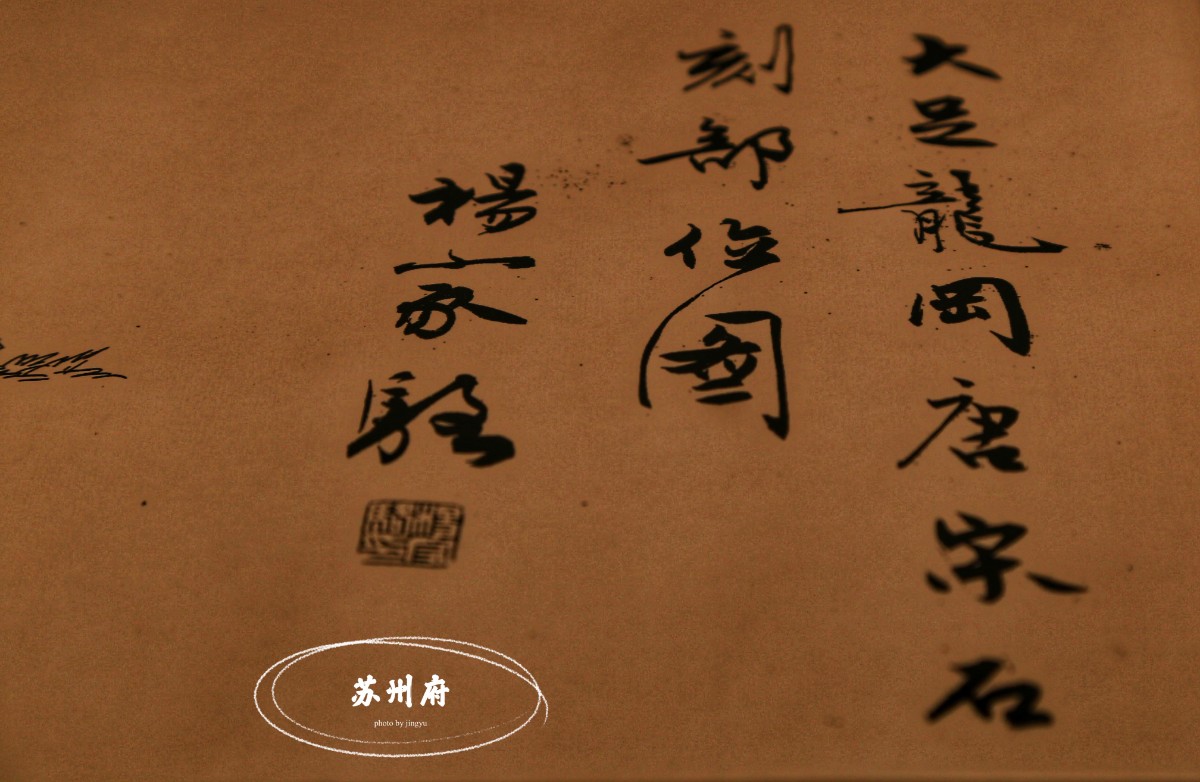 大足龍岡唐宋石
刻部位圖
楊家駱
苏州府
photo by jingyu